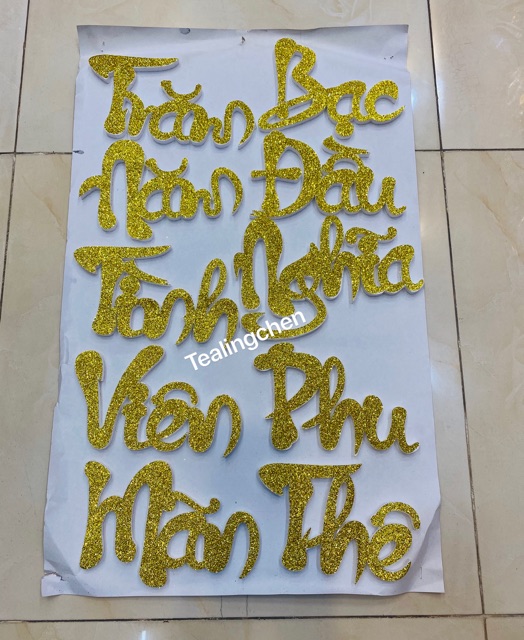 Trăm Bạc
Năm Đầu
Tình Nghĩa
Tealingchen
Viên Phu
Mãn Thê